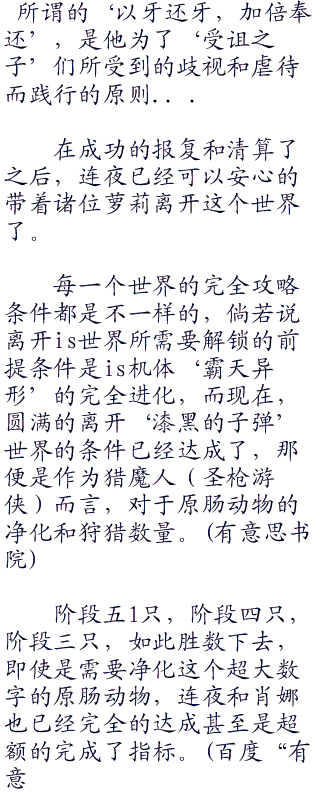 所谓的‘以牙还牙，加倍奉
还’，是他为了‘受诅之
子’们所受到的歧视和虐待
而践行的原则...
在成功的报复和清算了
之后，连夜已经可以安心的
带着诸位萝莉离开这个世界
了。
每一个世界的完全攻略
条件都是不一样的，倘若说
离开is世界所需要解锁的前
提条件是is机体‘霸天异
形’的完全进化，而现在，
圆满的离开‘漆黑的子弹’
世界的条件已经达成了，那
便是作为猎魔人（圣枪游
侠）而言，对于原肠动物的
净化和狩猎数量。(有意思书
院)
阶段五1只，阶段四只，
阶段三只，如此胜数下去，
即使是需要净化这个超大数
字的原肠动物，连夜和肖娜
也已经完全的达成甚至是超
额的完成了指标。(百度“有
意